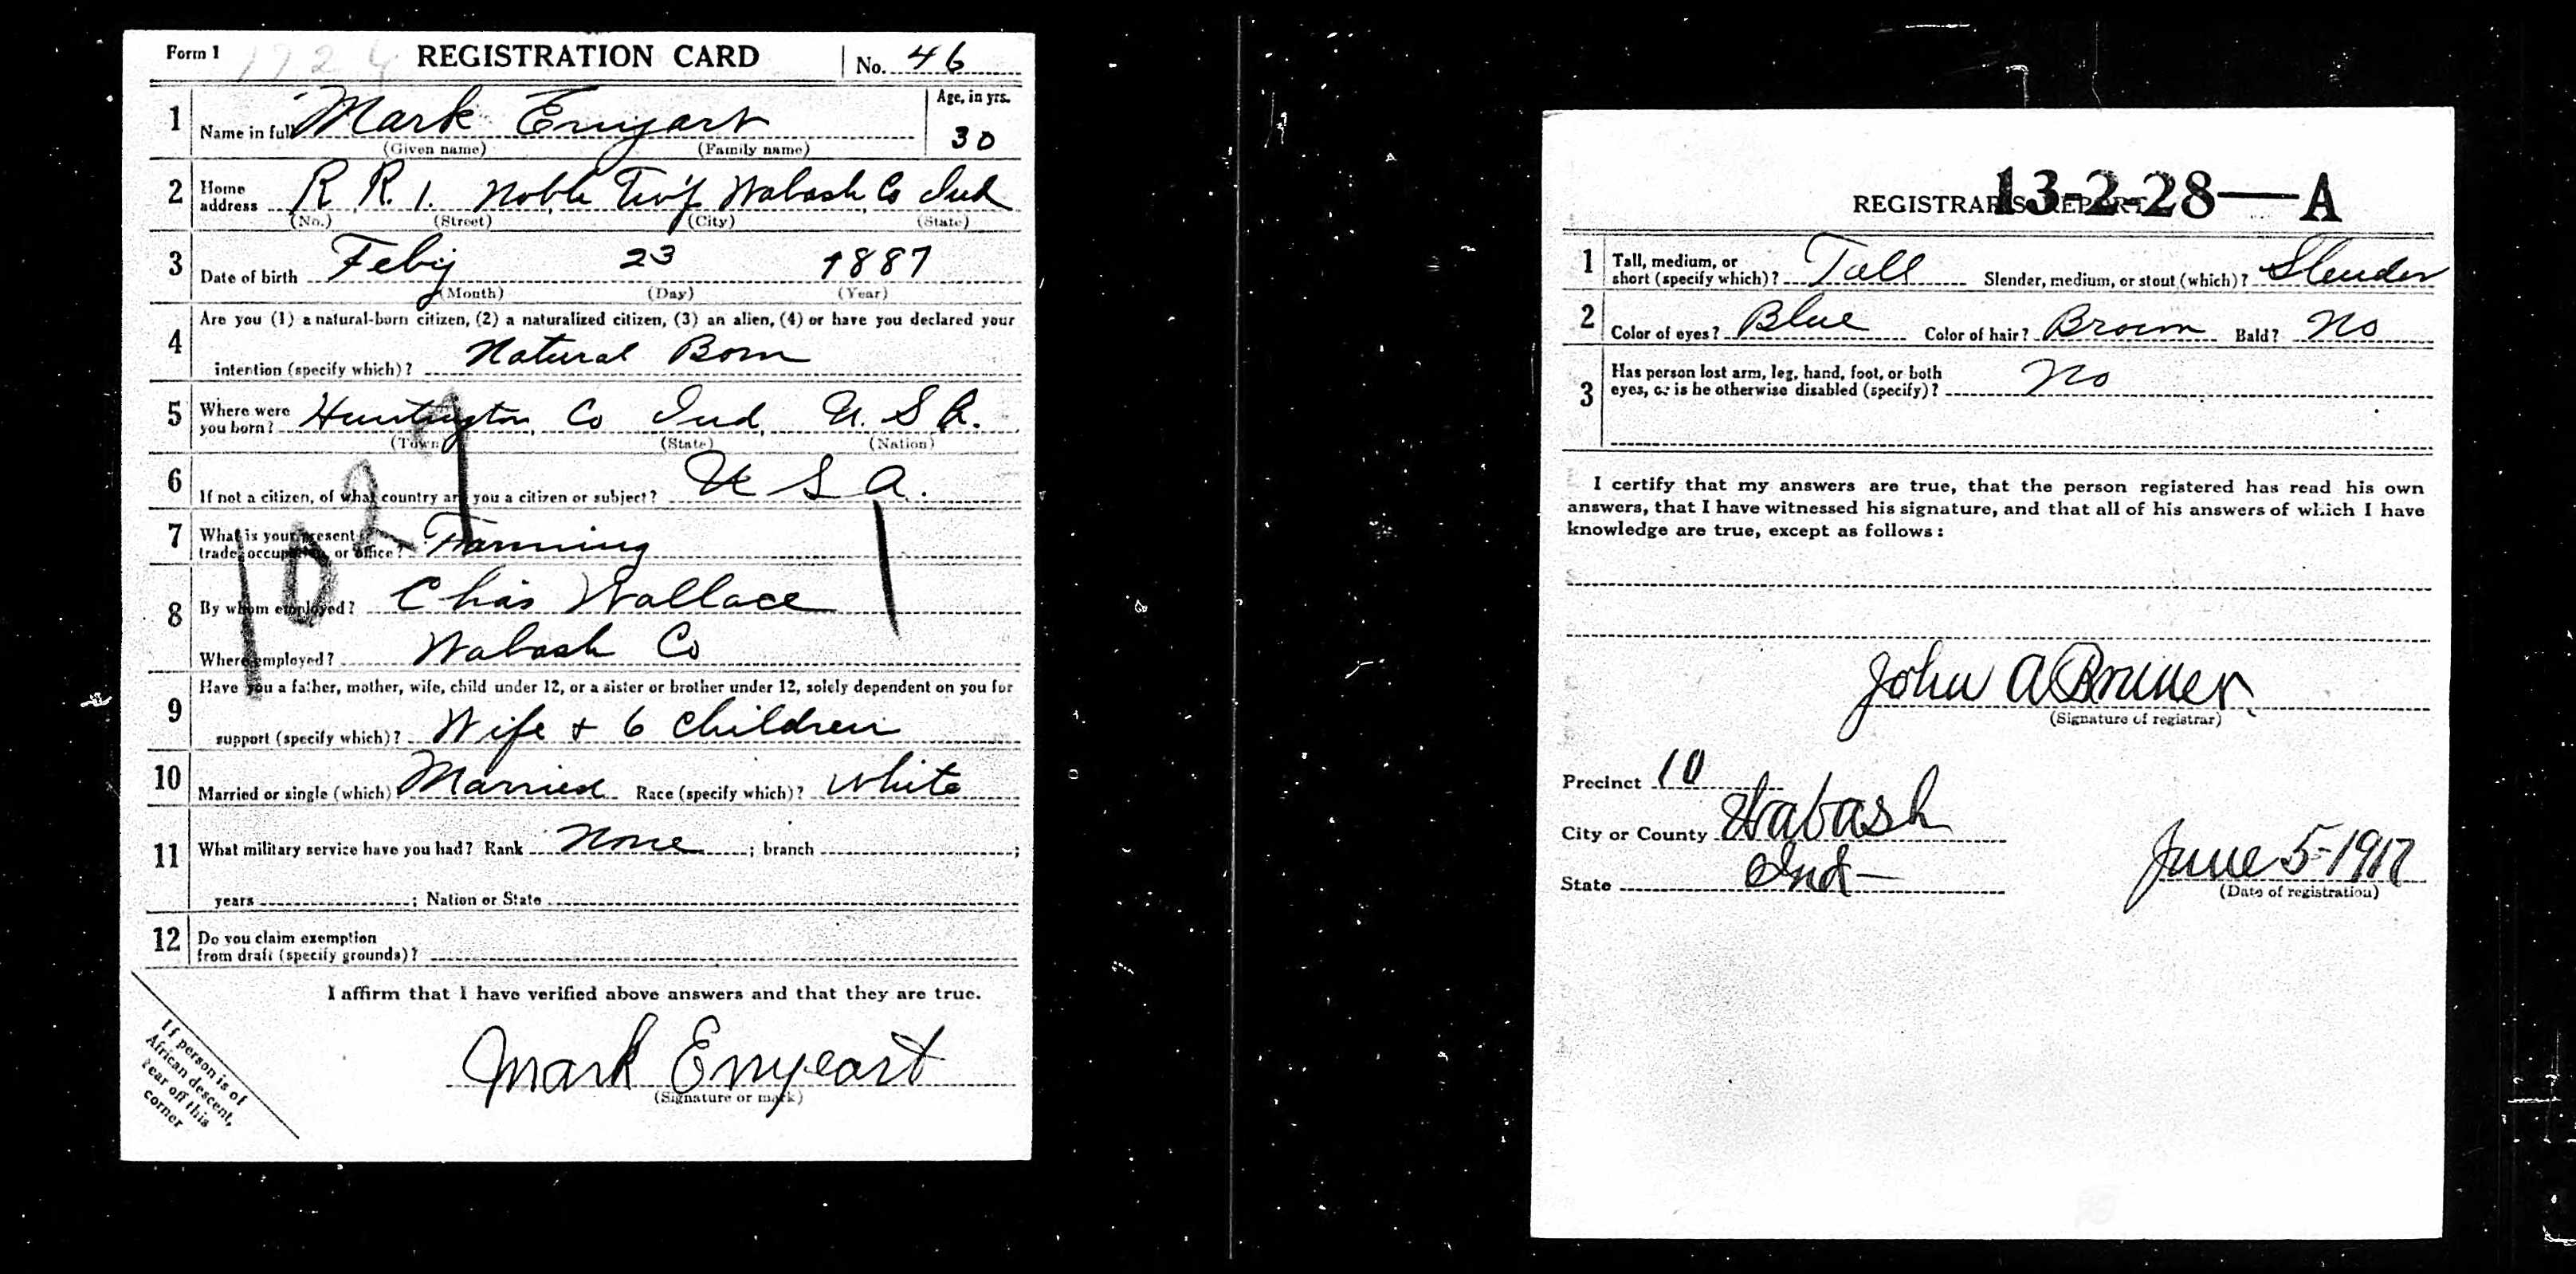 Form 1 1724 REGISTRATION CARD No. 46
1 Name in full Mark Enyart Age, in yrs. 30
(Given name) (Family name)
2 Home address R. R. 1. Noble Twp Wabash Co Ind
(No.) (Street) (City) (State)
3 Date of birth Feby 23 1887
(Month) (Day) (Year)
4 Are you (1) a natural-born citizen, (2) a naturalized citizen, (3) an alien, (4) or have you declared your
intention (specify which)? Natural Born
5 Where were you born? Huntington, Co Ind, U. S. A.
(Town) (State) (Nation)
6 If not a citizen, of what country are you a citizen or subject? U S A.
7 What is your present trade, occupation, or office? Farming
8 By whom employed? Chas Wallace
Where employed? Wabash Co
9 Have you a father, mother, wife, child under 12, or a sister or brother under 12, solely dependent on you for
support (specify which)? Wife + 6 Children
10 Married or single (which) Married Race (specify which)? White
11 What military service have you had? Rank None ; branch ;
years ; Nation or State
12 Do you claim exemption
from draft (specify grounds)?
I affirm that I have verified above answers and that they are true.
Mark Enyeart
(Signature or mark)
If person is of
African descent,
tear off this
corner
REGISTRAR'S REPORT
13-2-28—A
1 Tall, medium, or short (specify which)? Tall Slender, medium, or stout (which)? Slender
2 Color of eyes? Blue Color of hair? Brown Bald? No
3 Has person lost arm, leg, hand, foot, or both
eyes, or is he otherwise disabled (specify)? No
I certify that my answers are true, that the person registered has read his own
answers, that I have witnessed his signature, and that all of his answers of which I have
knowledge are true, except as follows:
John A Bruner
(Signature of registrar)
Precinct 10
City or County Wabash
State Ind
June 5-1917
(Date of registration)